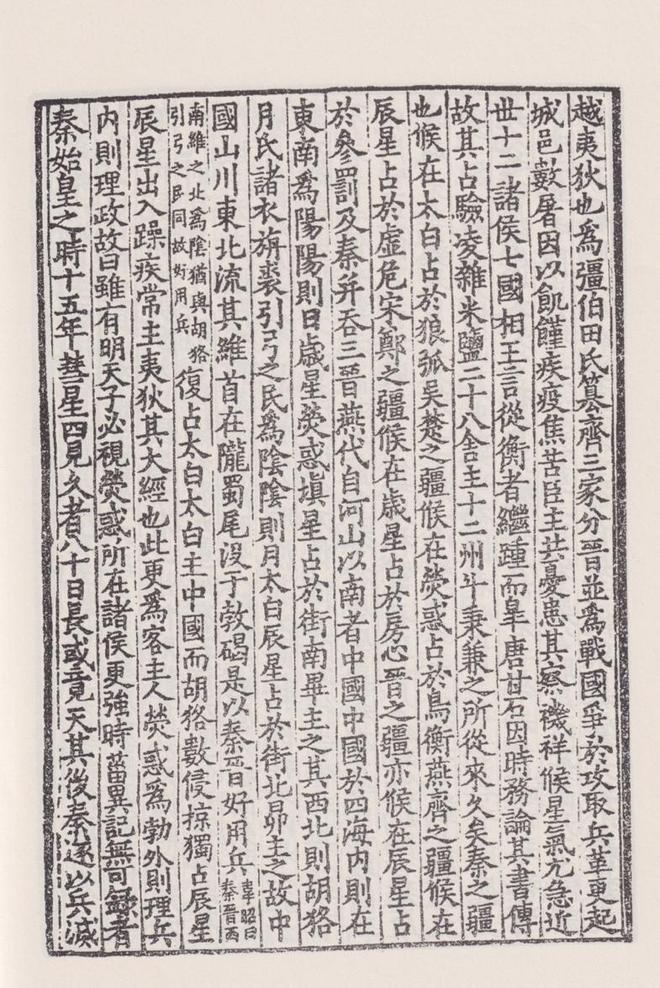 越夷狄也爲彊伯田氏簒齊三家分晉並爲戰國爭於攻取兵革更起
城邑數屠因以飢饉疾疫焦苦臣主共憂患其察禨祥候星氣尤急近
丗十二諸侯七國相王言從衡者繼踵而臯唐甘石因時務論其書傳
故其占驗凌雜米鹽二十八舎主十二州斗秉兼之所從來久矣秦之疆
也候在太白占於狼弧吳楚之疆候在熒惑占於鳥衡燕齊之疆候在
辰星占於虚危宋鄭之疆候在歳星占於房心晉之疆亦候在辰星占
於參罰及秦并吞三晉燕代自河山以南者中國中國於四海内則在
東南爲陽陽則日歳星熒惑塡星占於街南畢主之其西北則胡狢
月氏諸衣旃裘引弓之民爲隂隂則月太白辰星占於街北昴主之故中
國山川東北流其維首在隴蜀尾没于敦碣是以秦晉好用兵韋昭曰秦晉西
南維之北爲隂猶與胡狢引弓之民同故好用兵復占太白太白主中國而胡狢數侵掠獨占辰星
辰星出入躁疾常主夷狄其大經也此更爲客主人熒惑爲勃外則理兵
内則理政故曰雖有明天子必視熒惑所在諸侯更強時菑異記無可録者
秦始皇之時十五年彗星四見久者八十日長或竟天其後秦遂以兵滅